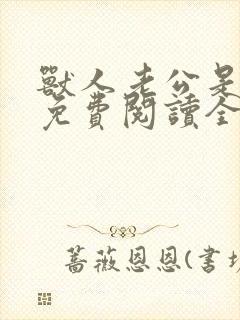 獸人老公是
免費閱讀全
薔薇恩恩(書坊